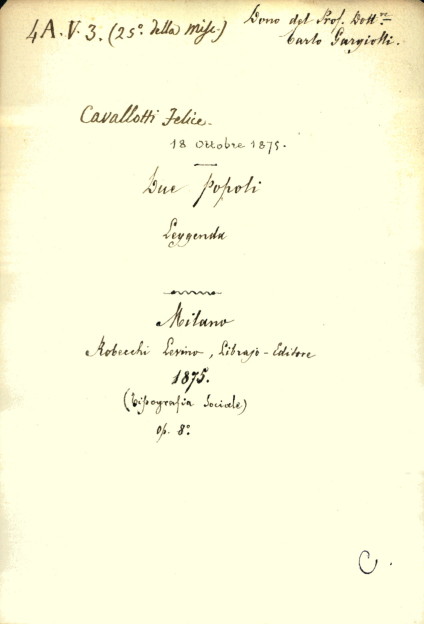 4A.V.3. (25º. della Misc.)
Dono del Prof. Dott.re
Carlo Gargiolli.
Cavallotti Felice.
18 Ottobre 1875.
Due Popoli
Leggenda
Milano
Robecchi Levino, Librajo-Editore
1875.
(Tipografia Sociale)
op. 8º.
C.